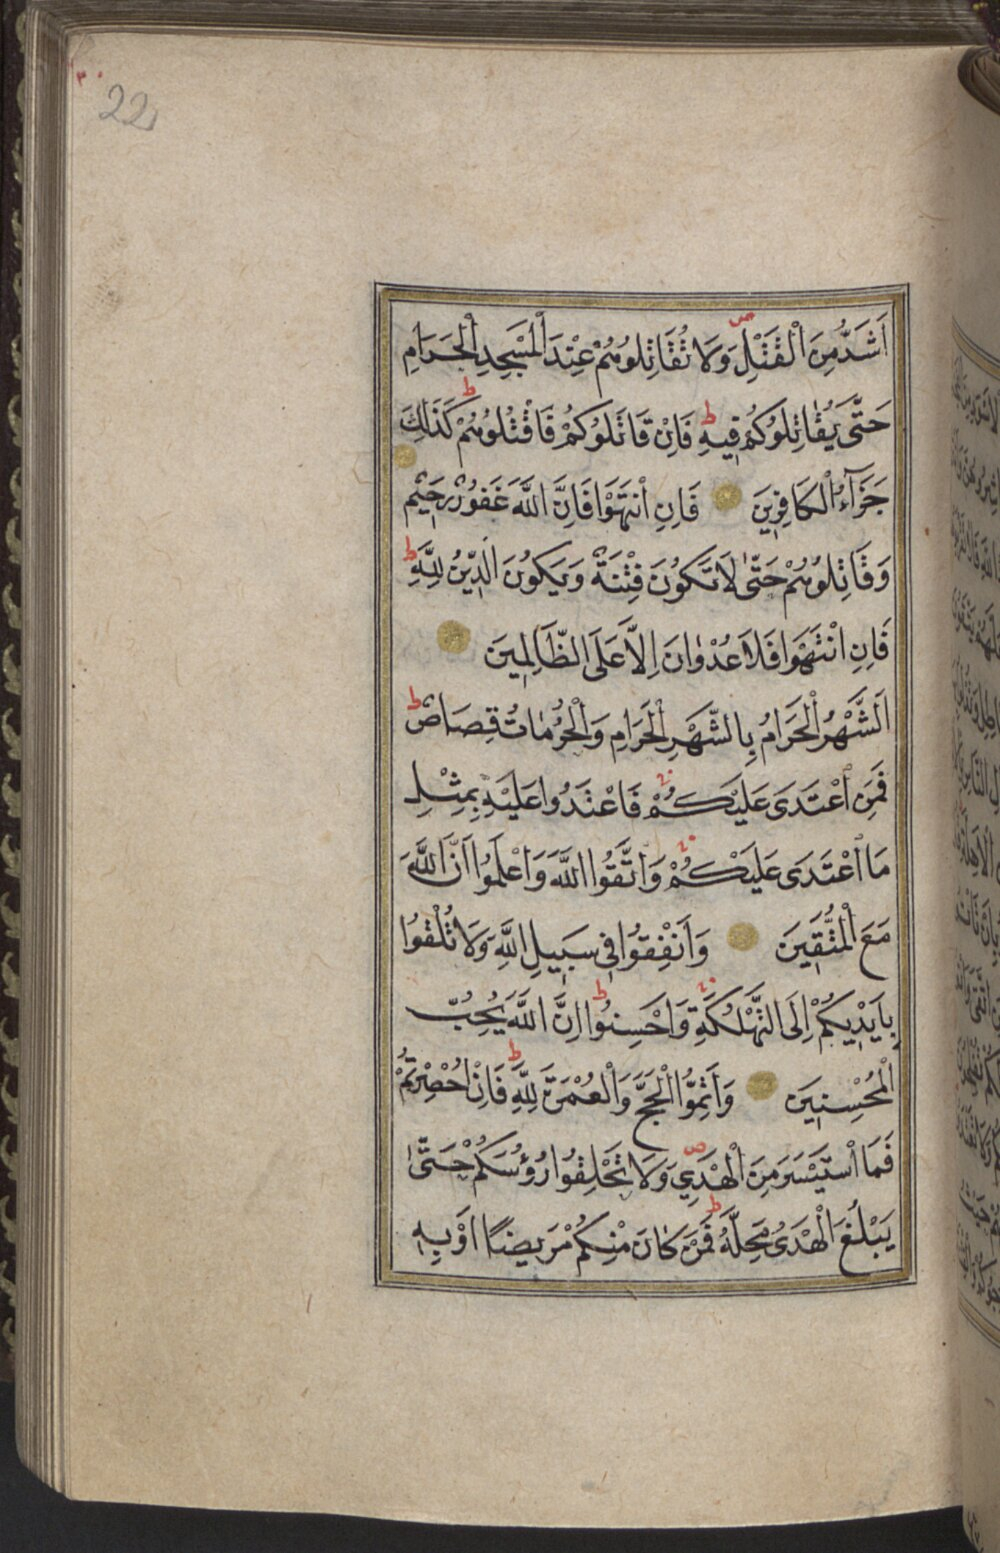 22
اَشَدُّ مِنَ الْقَتْلِ وَلَا تُقَاتِلُوهُمْ عِنْدَ الْمَسْجِدِ الْحَرَامِ
حَتّٰى يُقَاتِلُوكُمْ فِيهِ فَاِنْ قَاتَلُوكُمْ فَاقْتُلُوهُمْ كَذٰلِكَ
جَزَآءُ الْكَافِرِينَ فَاِنِ انْتَهَوْا فَاِنَّ اللّٰهَ غَفُورٌ رَحِيمٌ
وَقَاتِلُوهُمْ حَتّٰى لَا تَكُونَ فِتْنَةٌ وَيَكُونَ الدِّينُ لِلّٰهِ
فَاِنِ انْتَهَوْا فَلَا عُدْوَانَ اِلَّا عَلَى الظَّالِمِينَ
اَلشَّهْرُ الْحَرَامُ بِالشَّهْرِ الْحَرَامِ وَالْحُرُمَاتُ قِصَاصٌ
فَمَنِ اعْتَدٰى عَلَيْكُمْ فَاعْتَدُوا عَلَيْهِ بِمِثْلِ
مَا اعْتَدٰى عَلَيْكُمْ وَاتَّقُوا اللّٰهَ وَاعْلَمُوا اَنَّ اللّٰهَ
مَعَ الْمُتَّقِينَ وَاَنْفِقُوا فِي سَبِيلِ اللّٰهِ وَلَا تُلْقُوا
بِاَيْدِيكُمْ اِلَى التَّهْلُكَةِ وَاَحْسِنُوا اِنَّ اللّٰهَ يُحِبُّ
الْمُحْسِنِينَ وَاَتِمُّوا الْحَجَّ وَالْعُمْرَةَ لِلّٰهِ فَاِنْ اُحْصِرْتُمْ
فَمَا اسْتَيْسَرَ مِنَ الْهَدْيِ وَلَا تَحْلِقُوا رُؤُسَكُمْ حَتّٰى
يَبْلُغَ الْهَدْيُ مَحِلَّهُ فَمَنْ كَانَ مِنْكُمْ مَرِيضًا اَوْ بِهِ